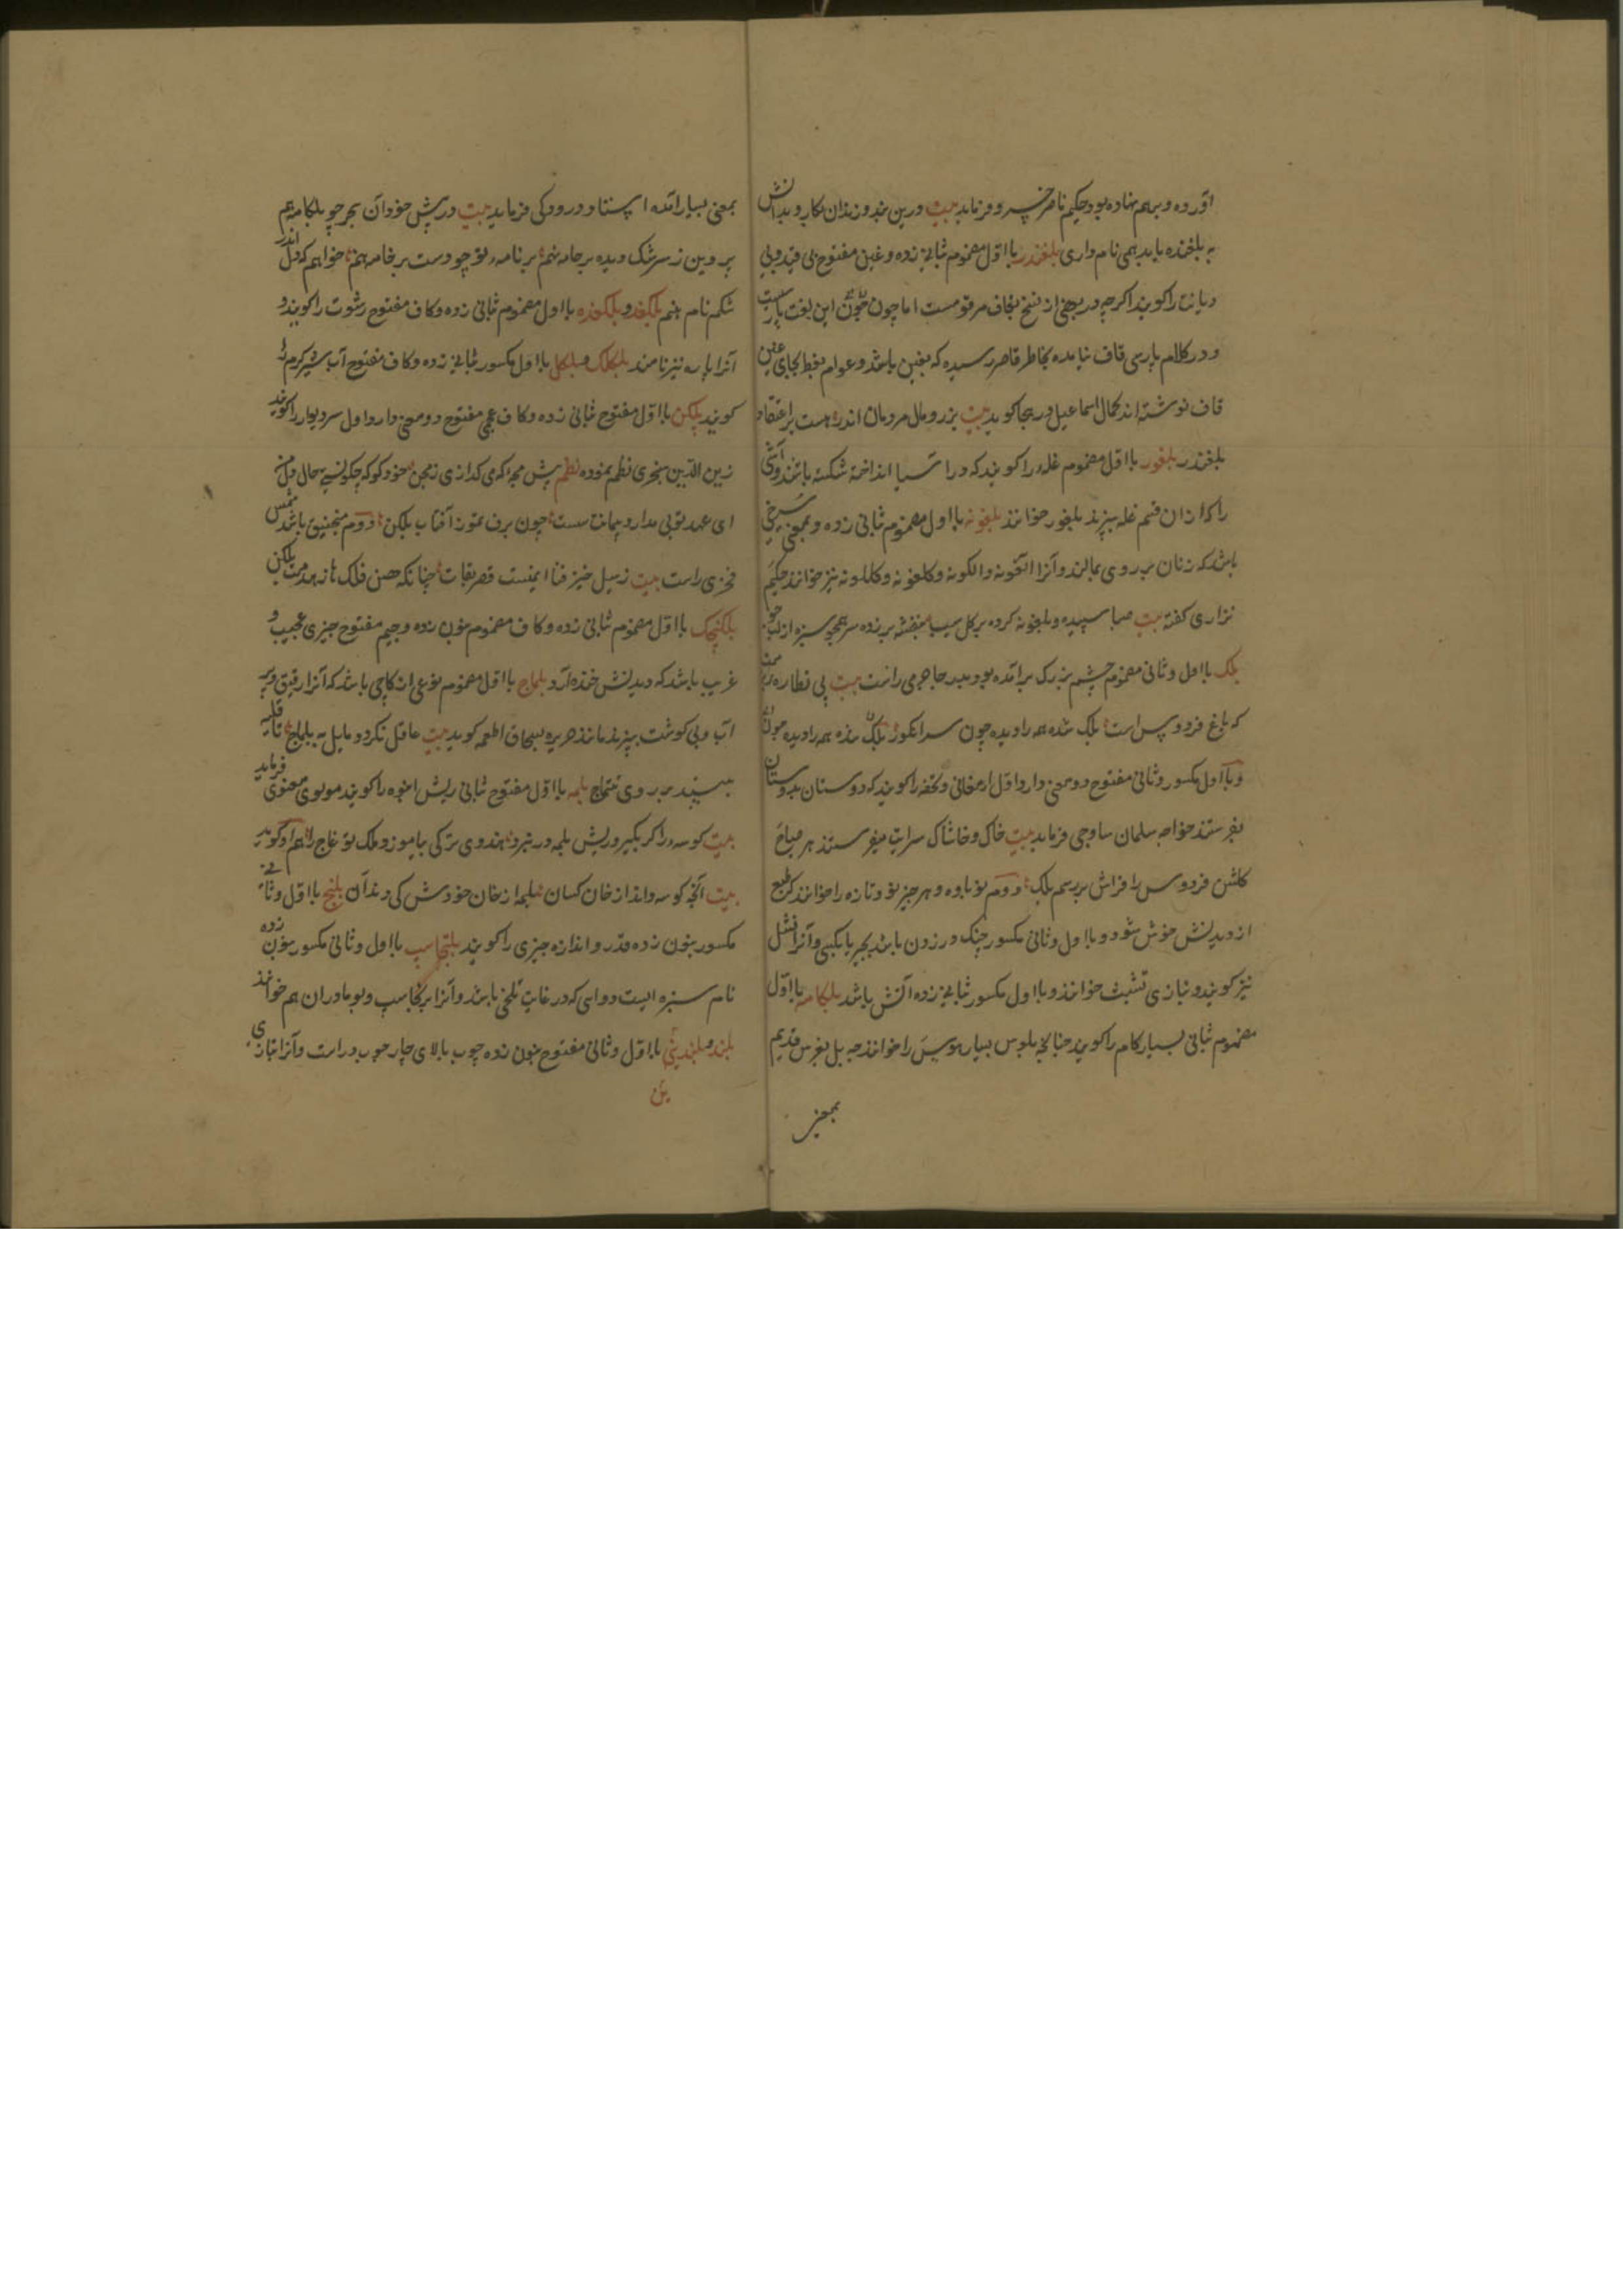 آورده و برهم نهاده بود حکیم ناصر خسرو فرماید بیت درین بند و زندان بکار و بدانش
به بلغنده باید همی نام داری بلغندر با اول مضموم ثانی زده و غین مفتوح بی قید و بی
دیانت را کویند اکرچه در بعضی از نسخ بقاف مرقومست اما چون این لغت پارسیست
و در کلام پارسی قاف نیامده بخاطر قاصر رسیده که بغین باشد و عوام بغلط بجای غین
قاف نوشته اند کمال اسماعیل در هجا کوید بیت بزر و مال مردمان اندر هست براعتقاد
بلغندر بلغور با اول مضموم غله را کویند که در آسیا انداخته شکسته باشند و آشی
را که ازان قسم غله بپزند بلغور خوانند بلغونه با اول مضموم ثانی زده و بمعنی سرخی
باشد که زنان بر روی بمالند و آنرا آلغونه و الکونه و کلغونه و کلکونه نیز خوانند حکیم
نزاری کفته بیت صبا سپیده و بلغونه کرده بر کل سیب بنفشه بر زده سر همچو سبزه از لب جو
بلک با اول و ثانی مضموم چشم بزرک برآمده بود بدر جاجرمی راست بیت پی نظاره
که باغ فردوس است بلک شده همه را دیده چون سر انکور بلک شده همه را دیده چون
و با اول مکسور و ثانی مفتوح دو معنی دارد اول ارمغانی و تحفه را کویند که دوستان بدوستان
بفرستند خواجه سلمان ساوجی فرماید بیت خاک و خاشاک سرایت میفرستند هر صباح
کلشن فردوس را فراش بر رسم بلک دوم نوباوه و هر چیز نو و تازه را خوانند که طبع
از دیدنش خوش شود و با اول و ثانی مکسور چنک در زدن باشد بچیزی یا بکسی و آنرا فشل
نیز کویند و بتازی تشبث خوانند و با اول مکسور ثانی زده آتش باشد بلکامه با اول
مضموم ثانی بسیار کام را کویند چنانچه بلهوس بسیار هوس را خوانند چه بل بفرس قدیم
بمعنی
بمعنی بسیار آمده استاد رودکی فرماید بیت درپیش خود آن بحر چو بلکامه نهم
پروین ز سرشک دیده بر جامه نهم بر نامه تو چو دست بر خامه نهم خواهم که دل اندر
شکم نامه نهم بلکفد و بلکفده با اول مضموم ثانی زده و کاف مفتوح رشوت را کویند و
آنرا پاره نیز نامند بلکلک و بلکل با اول مکسور ثانی زده و کاف مفتوح آب شیر کرم را
کویند بلکن با اول مفتوح ثانی زده و کاف عجمی مفتوح دو معنی دارد اول سر دیوار را کویند
زین الدین سنجری نظم نموده نظم خود کو که چکونه حال من
ای عهد تو بی مدار و پیمانت سست چون برف تموز آفتاب بلکن دوم منجنیق باشد شمس
فخری راست بیت ز سیل خیز فنا ایمنست قصر بقات چنانکه حصن فلک از بلکن
بلکنجک با اول مضموم ثانی زده و کاف مضموم بنون زده و جیم مفتوح چیزی عجیب و
غریب باشد که دیدنش خنده آرد بلماج با اول مضموم نوعی از کاچی باشد که آنرا رقیق و پر
آب و بی کوشت بپزند مانند حریره بسحاق اطعمه کوید بیت عاقل نکردد مایل به بلماج تا قلیه
بیند بر روی تتماج بلمه با اول مفتوح ثانی ریش انبوه را کویند مولوی معنوی فرماید
بیت کوسه را کر بکیر و ریش بلمه هندوی ترکی بیاموز و ملک توغاج را هم او کوید
بیت آنچه کوسه داند از خان کسان بلمه از خان خودش کی داند آن بلنج با اول و ثانی
مکسور بنون زده قدر و اندازه چیزی را کویند بلنجاسپ با اول و ثانی مکسور بنون زده
نام سبزه ایست دوایی که در غایت تلخی باشد و آنرا برنجاسپ و بومادران هم خوانند
بلند و بلندین با اول و ثانی مفتوح بنون زده چوب بالای چارچوب در است و آنرا بتازی